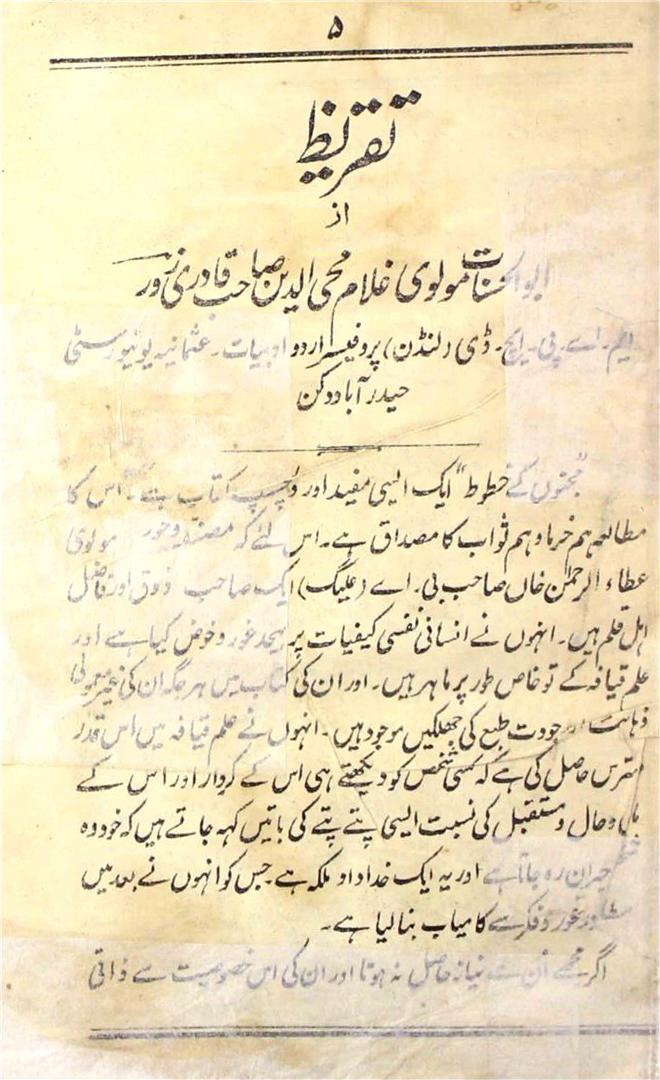 ۵
تقریظ
از
ابوالحسنات مولوی غلام محی الدین صاحب قادری زور
ایم۔ اے۔ پی۔ ایچ۔ ڈی (لنڈن) پروفیسر اردو ادبیات۔ عثمانیہ یونیورسٹی
حیدرآباد دکن
"مجنوں کے خطوط" ایک ایسی مفید اور دلچسپ کتاب ہے۔ اس کا
مطالعہ ہم خرما و ہم ثواب کا مصداق ہے۔ اس لئے کہ مصنف مولوی
عطاء الرحمٰن خاں صاحب بی۔ اے (علیگ) ایک صاحب ذوق اور فاضل
اہل قلم ہیں۔ انہوں نے انسانی نفسی کیفیات پر بیحد غور و خوض کیا ہے اور
علم قیافہ کے تو خاص طور پر ماہر ہیں۔ اور ان کی کتاب میں ہر جگہ ان کی غیر معمولی
ذہانت اور جودت طبع کی جھلکیں موجود ہیں۔ انہوں نے علم قیافہ میں اس قدر
دسترس حاصل کی ہے کہ کسی شخص کو دیکھتے ہی اس کے کردار اور اس کے
ماضی و حال و مستقبل کی نسبت ایسی پتے پتے کی باتیں کہہ جاتے ہیں کہ خود وہ
حیران رہ جاتا ہے اور یہ ایک خداداد ملکہ ہے جس کو انہوں نے بعد میں
غور و فکر سے کامیاب بنا لیا ہے۔
اگر مجھے ان سے نیاز حاصل نہ ہوتا اور ان کی اس خصوصیت سے ذاتی